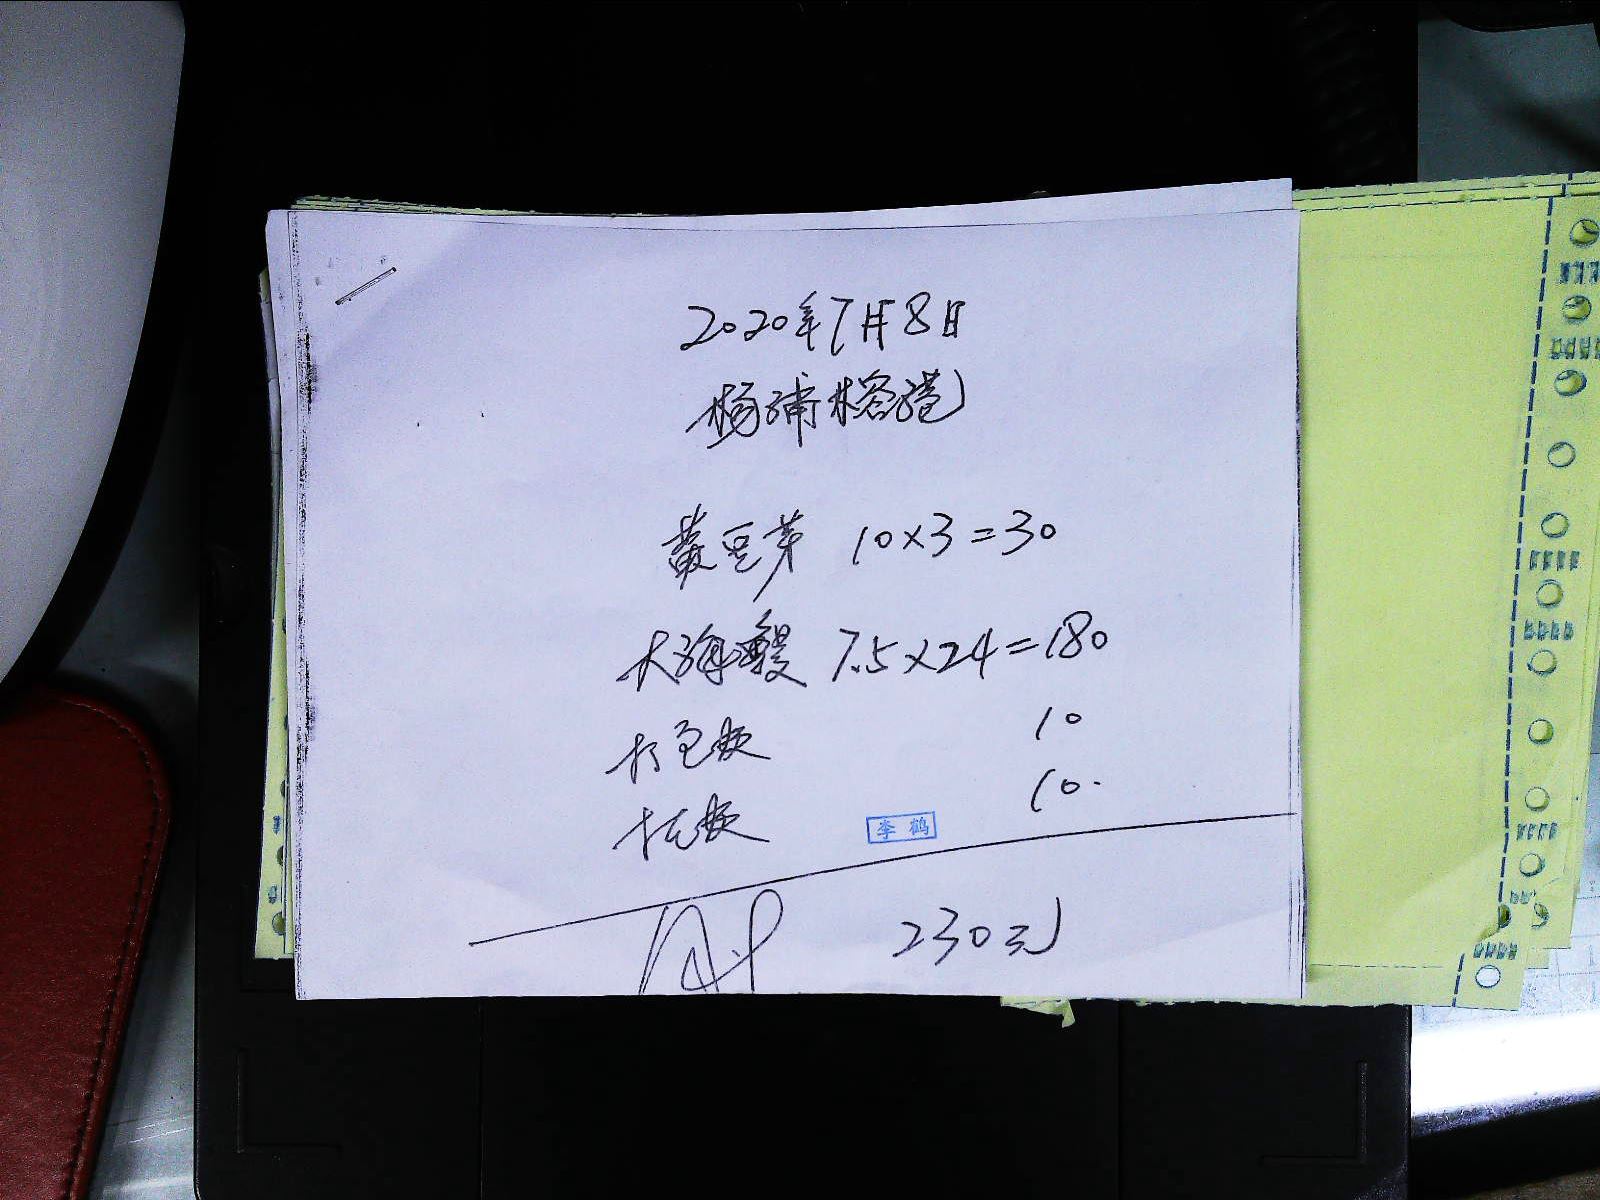 2020年7月8日
杨浦榕港
黄豆芽 10×3=30
大海鳗 7.5×24=180
打包费 10
打的费 10.
李鹤
230元